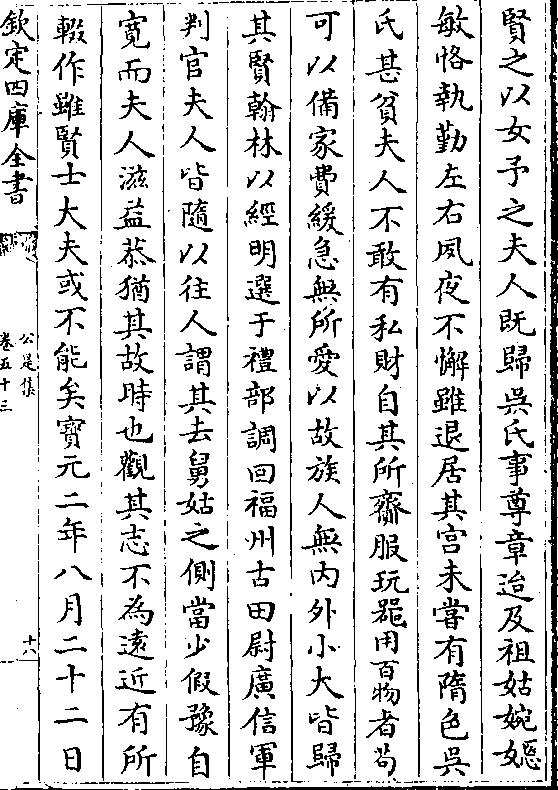 賢之以女予之夫人既歸吳氏事尊章迨及祖姑婉嫕
敏恪執勤左右夙夜不懈雖退居其宫未嘗有隋色吳
氏甚貧夫人不敢有私財自其所齎服玩噐用百物者茍
可以備家費緩急無所愛以故族人無内外小大皆歸
其賢翰林以經明選于禮部調回福州古田尉廣信軍
判官夫人皆隨以往人謂其去舅姑之側當少假豫自
寛而夫人滋益恭猶其故時也觀其志不為遠近有所
輟作雖賢士大夫或不能矣寳元二年八月二十二日
欽定四庫全書
公是集
卷五十三
十六